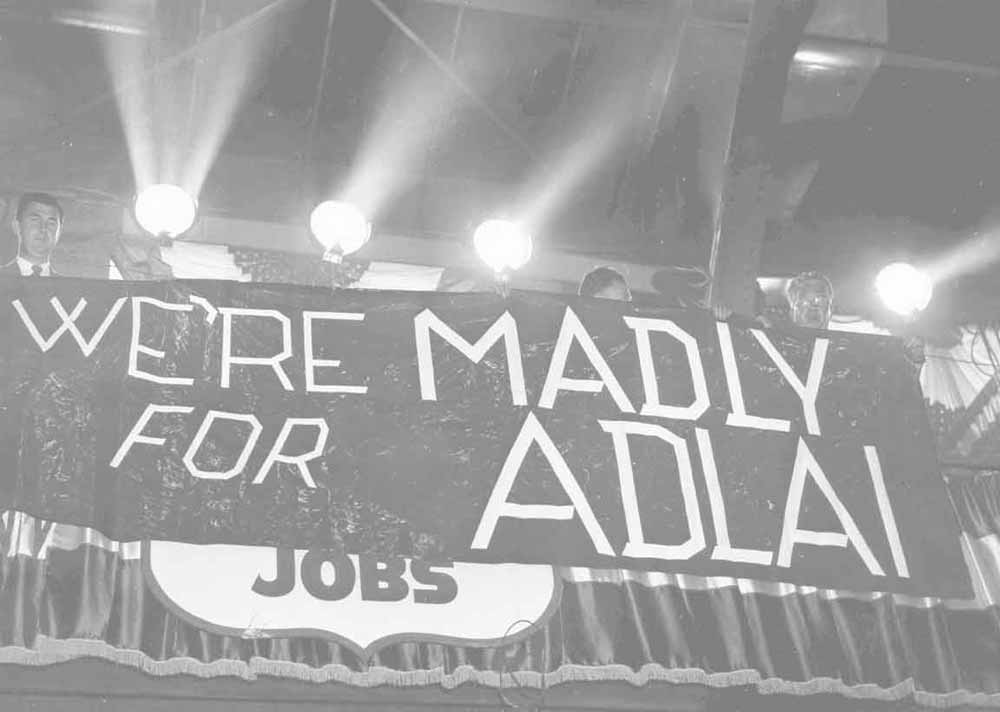 WE'RE MADLY
FOR ADLAI
JOBS